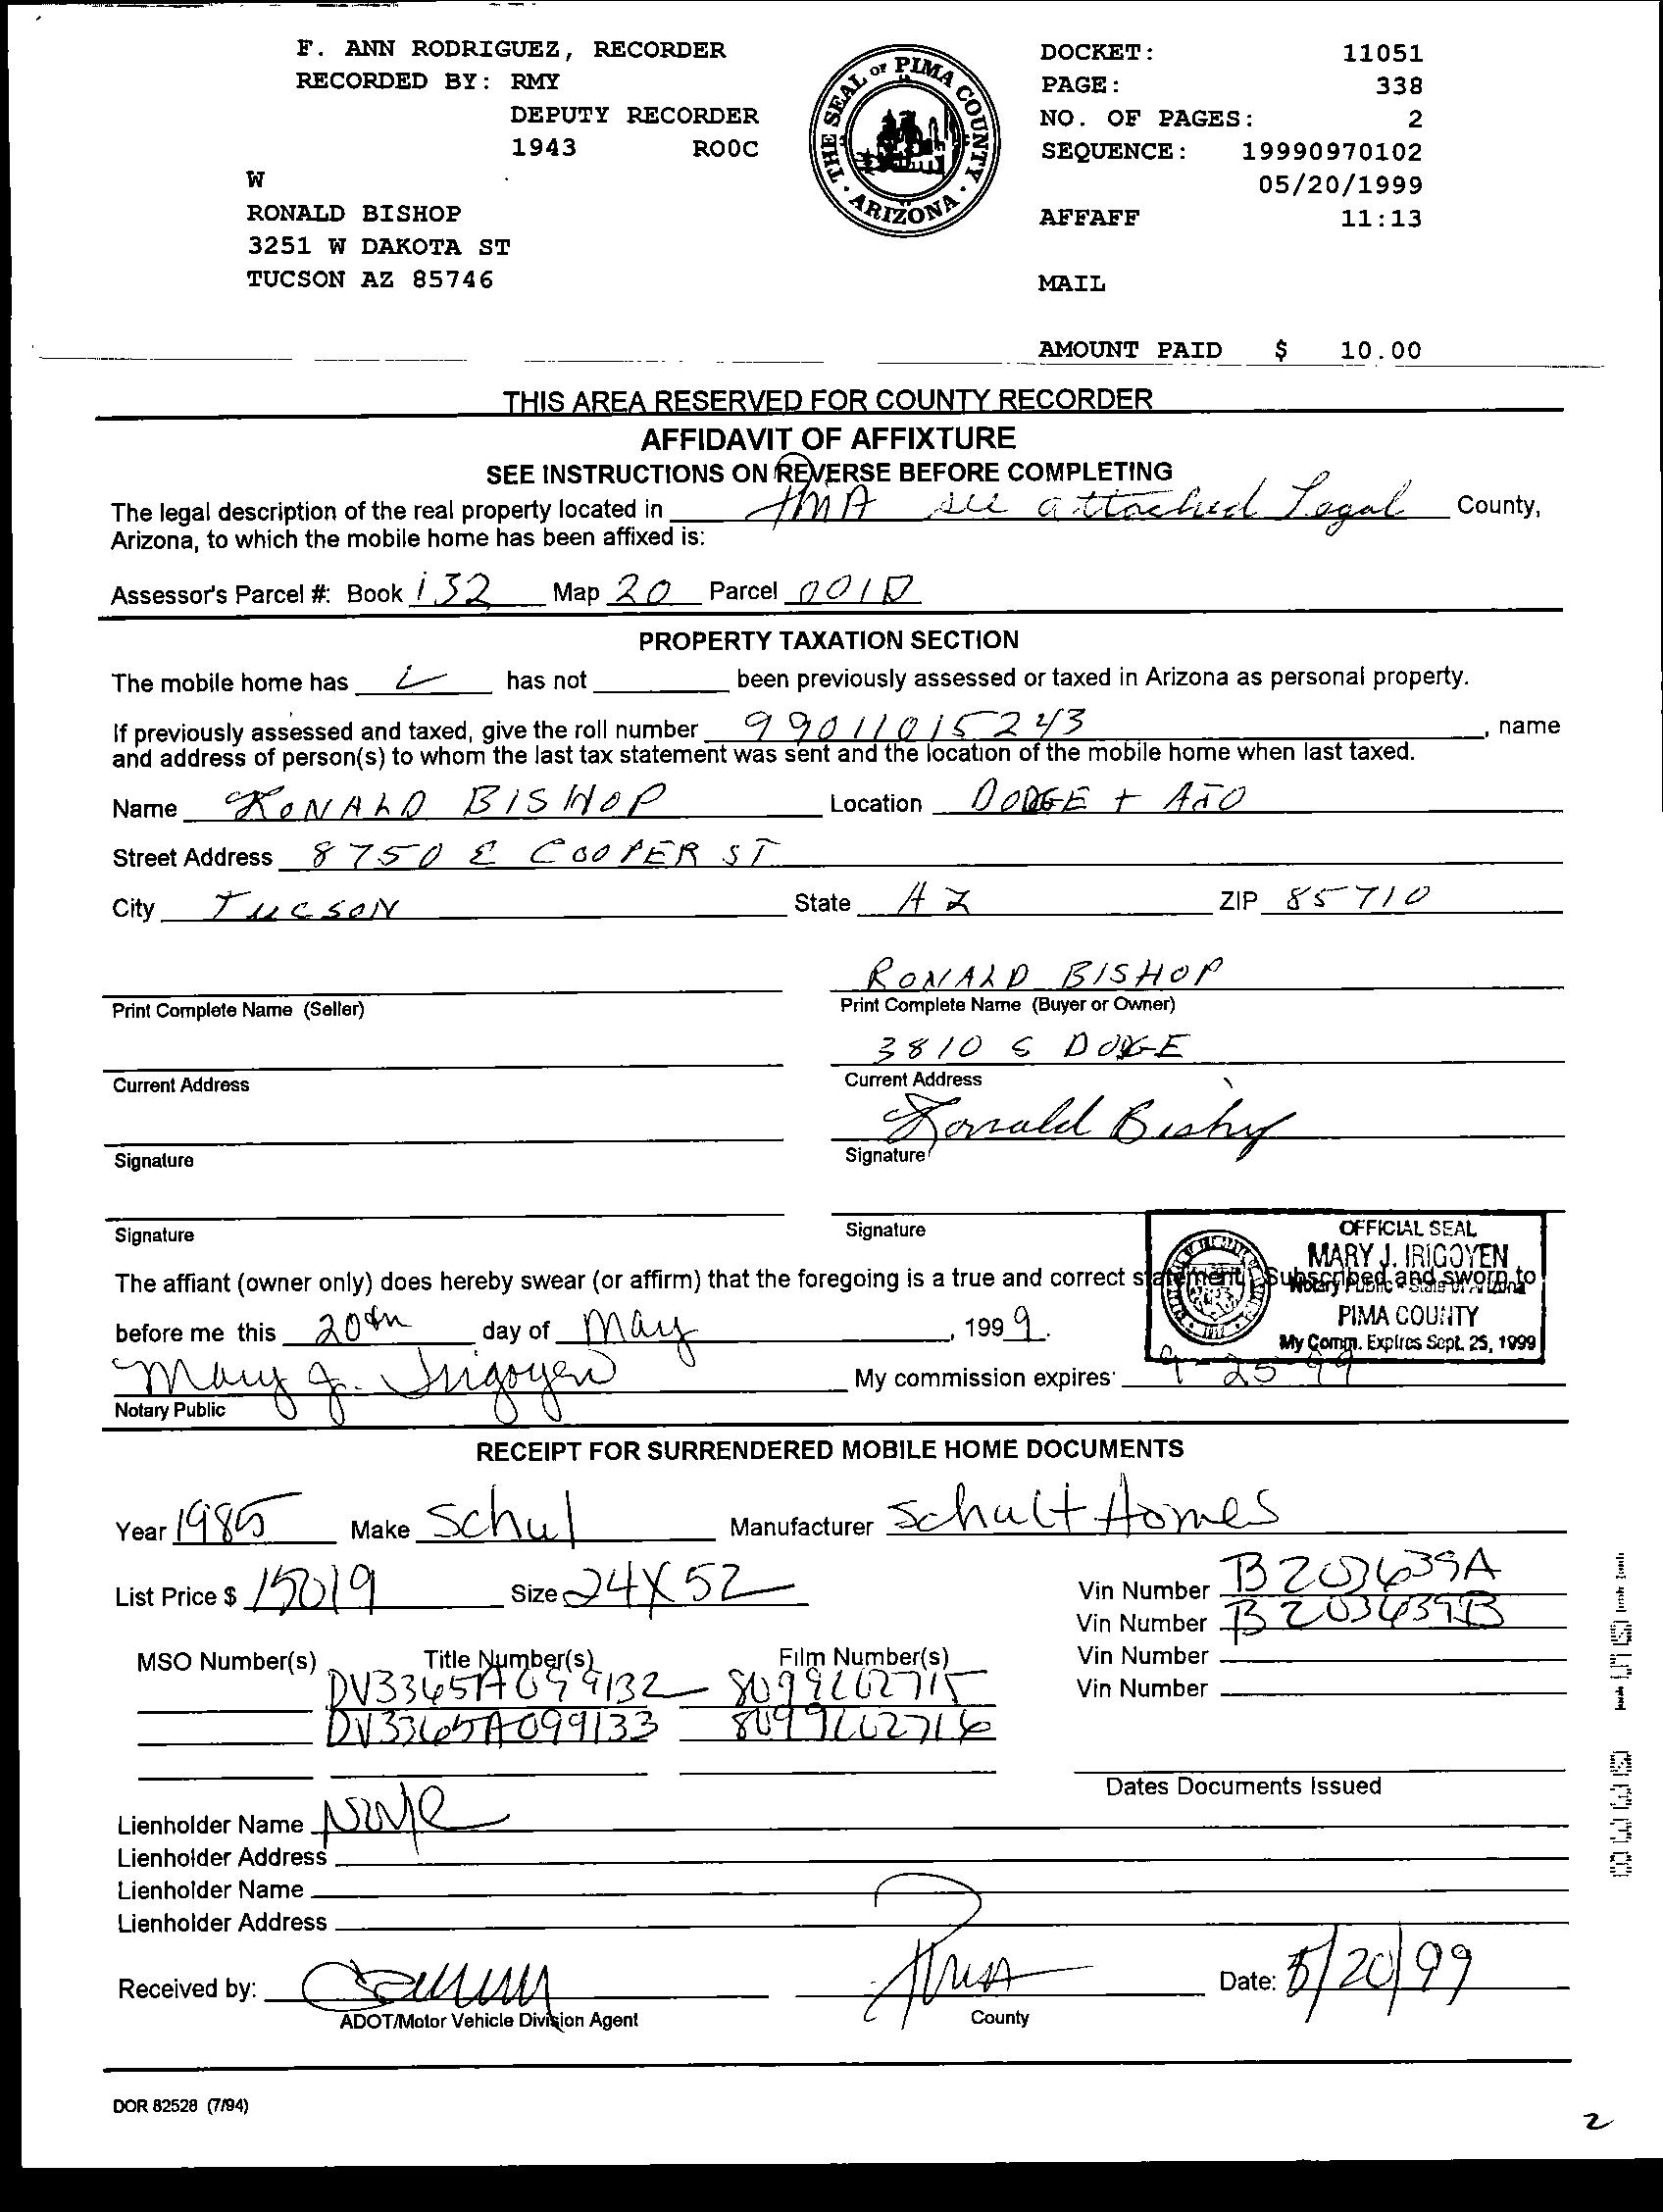 F. ANN RODRIGUEZ, RECORDER
RECORDED BY: RMY
DEPUTY RECORDER
1943 ROOC
W
RONALD BISHOP
3251 W DAKOTA ST
TUCSON AZ 85746
THE SEAL OF PIMA COUNTY · ARIZONA ·
DOCKET: 11051
PAGE: 338
NO. OF PAGES: 2
SEQUENCE: 19990970102
05/20/1999
AFFAFF 11:13
MAIL
AMOUNT PAID $ 10.00
THIS AREA RESERVED FOR COUNTY RECORDER
AFFIDAVIT OF AFFIXTURE
SEE INSTRUCTIONS ON REVERSE BEFORE COMPLETING
The legal description of the real property located in PIMA see attached Legal County,
Arizona, to which the mobile home has been affixed is:
Assessor's Parcel #: Book 132 Map 20 Parcel 001D
PROPERTY TAXATION SECTION
The mobile home has has not been previously assessed or taxed in Arizona as personal property.
If previously assessed and taxed, give the roll number 99011015243, name
and address of person(s) to whom the last tax statement was sent and the location of the mobile home when last taxed.
Name RONALD BISHOP Location DODGE + AJO
Street Address 8750 E COOPER ST
City TUCSON State AZ ZIP 85710
RONALD BISHOP
Print Complete Name (Seller) Print Complete Name (Buyer or Owner)
3810 S DODGE
Current Address Current Address
Ronald Bishop
Signature Signature
Signature Signature
OFFICIAL SEAL
MARY J. IRIGOYEN
Notary Public - State of Arizona
PIMA COUNTY
My Comm. Expires Sept. 25, 1999
The affiant (owner only) does hereby swear (or affirm) that the foregoing is a true and correct statement. Subscribed and sworn to
before me this 20th day of May, 1999.
Mary J. Irigoyen My commission expires: 9-25-99
Notary Public
RECEIPT FOR SURRENDERED MOBILE HOME DOCUMENTS
Year 1985 Make Schul Manufacturer Schult Homes
List Price $ 15019 Size 24X52 Vin Number B203639A
Vin Number B203639B
MSO Number(s) Title Number(s) Film Number(s) Vin Number
DV3365A099132 8099202715 Vin Number
DV3365A099133 8099202716
Dates Documents Issued
Lienholder Name None
Lienholder Address
Lienholder Name
Lienholder Address
Received by: Pima Date: 5/20/99
ADOT/Motor Vehicle Division Agent County
DOR 82528 (7/94)
2